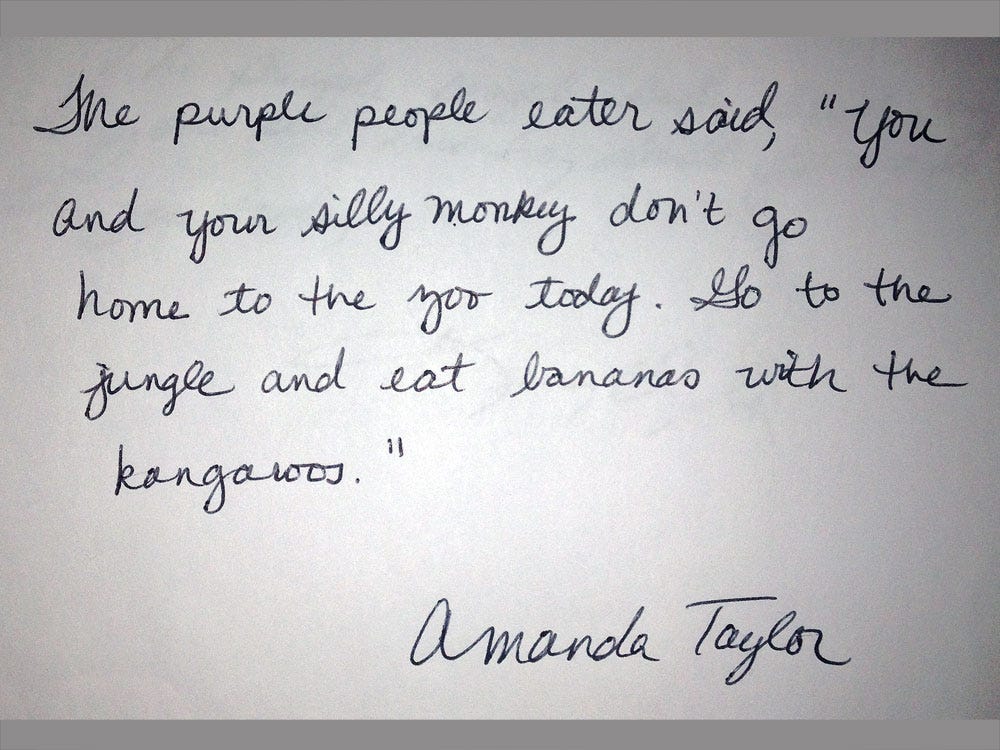 The purple people eater said, "You
and your silly monkey don't go
home to the zoo today. Go to the
jungle and eat bananas with the
kangaroos."
Amanda Taylor